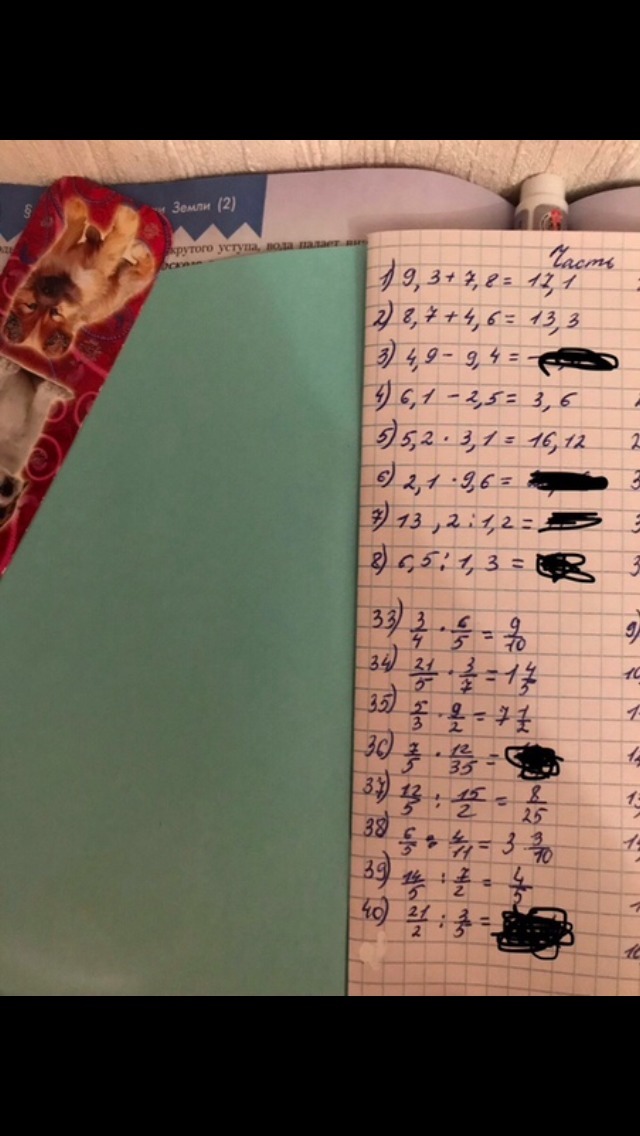 §
и Земли (2)
крутого уступа, вода падает
Часть
1) 9,3 + 7,8 = 17,1
2) 8,7 + 4,6 = 13,3
3) 4,9 - 9,4 = -
4) 6,1 - 2,5 = 3,6
5) 5,2 · 3,1 = 16,12
6) 2,1 · 9,6 =
7) 13,2 : 1,2 =
8) 6,5 : 1,3 =
33) 3/4 · 6/5 = 9/10
34) 21/5 · 3/7 = 1 4/5
35) 5/3 · 9/2 = 7 1/2
36) 7/5 · 12/35 =
37) 12/5 : 15/2 = 8/25
38) 6/5 : 4/11 = 3 3/10
39) 14/5 : 7/2 = 4/5
40) 21/2 : 3/5 =
9)